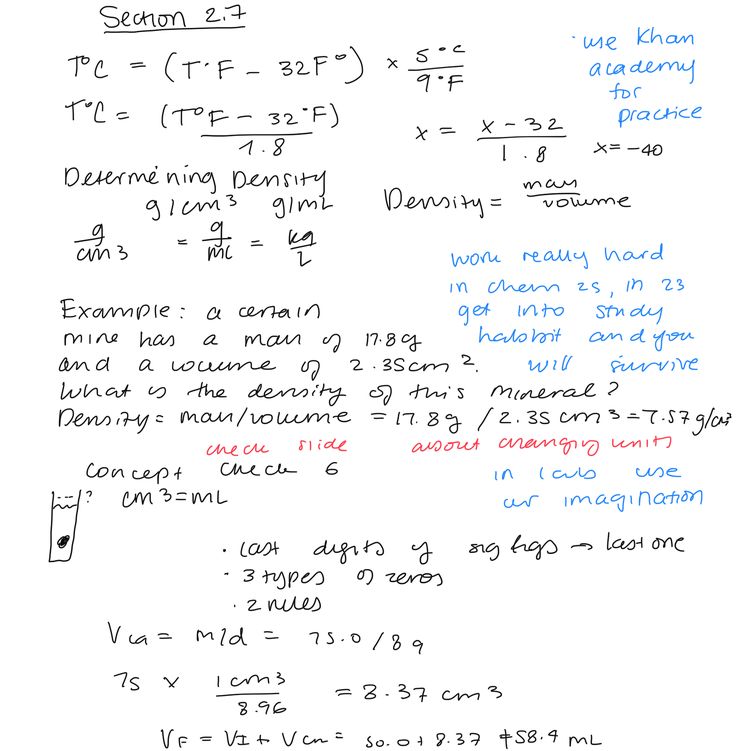 Section 2.7
T°C = (T°F - 32F°) × 5°C/9°F
T°C = (T°F - 32°F)/1.8
· use Khan
academy
for
practice
x = x - 32/1.8 x = -40
Determining Density
g/cm3 g/mL
Density = mass/volume
g/cm3 = g/mL = kg/L
work really hard
in chem 25, in 23
get into study
habbit and you
will survive
Example: a certain
mine has a mass of 17.8g
and a volume of 2.35cm2.
What is the density of this mineral?
Density = mass/volume = 17.8g / 2.35 cm3 = 7.57 g/cm3
check slide about changing units
concept check 6
in labs use
ur imagination
? cm3 = mL
· Last digits of sig figs → last one
· 3 types of zeros
· 2 rules
= m/d = 75.0/89
75 × 1cm3/8.96 = 8.37 cm3
VF = VI + = 50.0 + 8.37 = 58.4 mL